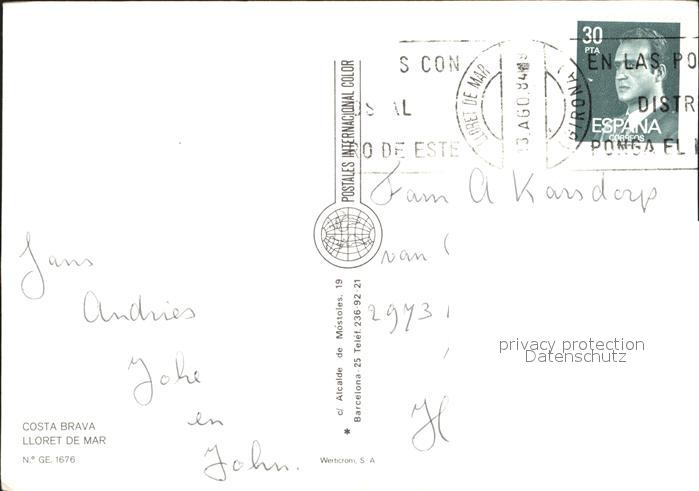 30
PTA
ESPAÑA
CORREOS
S CON
AL
RO DE ESTE
LLORET DE MAR
13 AGO. 84
(GIRONA)
EN LAS PO
DISTR
PONGA EL
POSTALES INTERNACIONAL COLOR
c/ Alcalde de Móstoles, 19
Barcelona-25 Teléf. 236-92-21
Fam A Karsdorp
van
2973
H
privacy protection
Datenschutz
Jans
Andries
Joke
en
John.
COSTA BRAVA
LLORET DE MAR
N.º GE. 1676
Werticrom, S-A